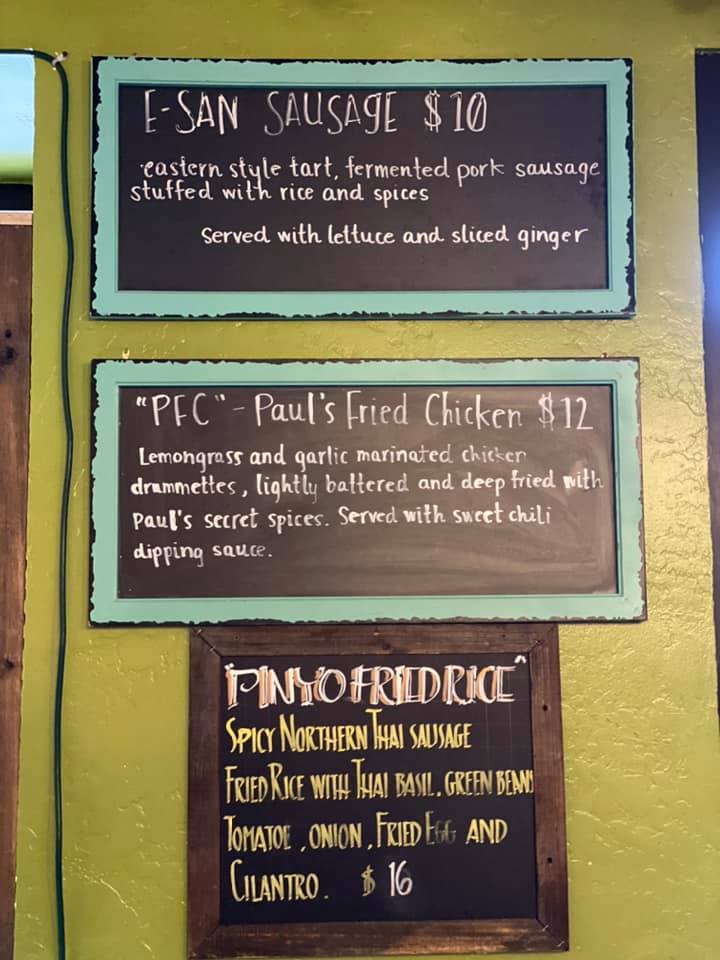 E-SAN SAUSAGE $10
eastern style tart, fermented pork sausage
stuffed with rice and spices
Served with lettuce and sliced ginger
"PFC" - Paul's Fried Chicken $12
Lemongrass and garlic marinated chicken
drummettes, lightly battered and deep fried with
Paul's secret spices. Served with sweet chili
dipping sauce.
"PINYO FRIED RICE"
SPICY NORTHERN THAI SAUSAGE
FRIED RICE WITH THAI BASIL. GREEN BEANS
TOMATOE, ONION, FRIED EGG AND
CILANTRO. $16